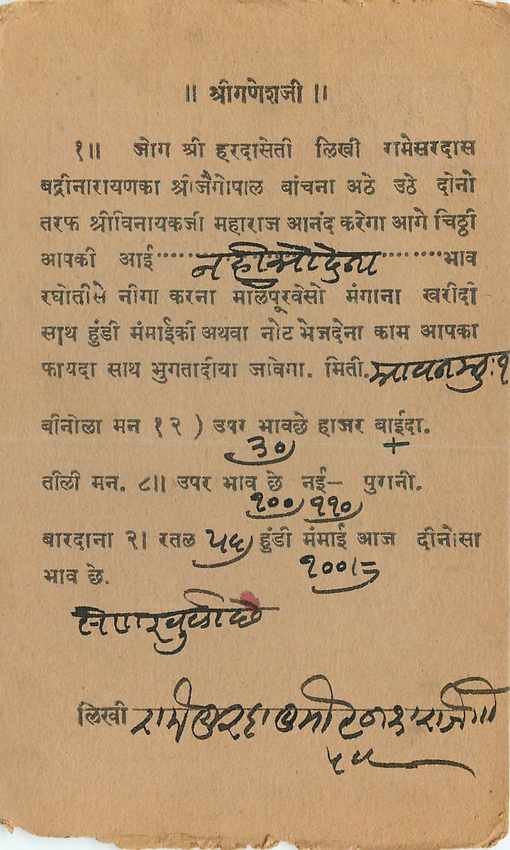 ॥ श्रीगणेशजी ॥
१॥ जोग श्री हरदासेती लिखी रामेसरदास
बद्रीनारायणका श्रीजैगोपाल बांचना अठे उठे दोनो
तरफ श्रीविनायकजी महाराज आनंद करेगा आगे चिठ्ठी
आपकी आई ........ भाव
रघोतीसे नीगा करना मालपूरवेसो मंगाना खरीदी
साथ हुंडी मंमाईकी अथवा नोट भेजदेना काम आपका
फायदा साथ भुगतादीया जावेगा. मिती.
बीनोला मन १२ ) उपर भावछे हाजर बाईदा.
३०) +
तीली मन. ८॥ उपर भाव छे नई— पुरानी.
१००) ११०)
बारदाना २। रतल ५६) हुंडी मंमाई आज दीनोसा
भाव छे.
लिखी